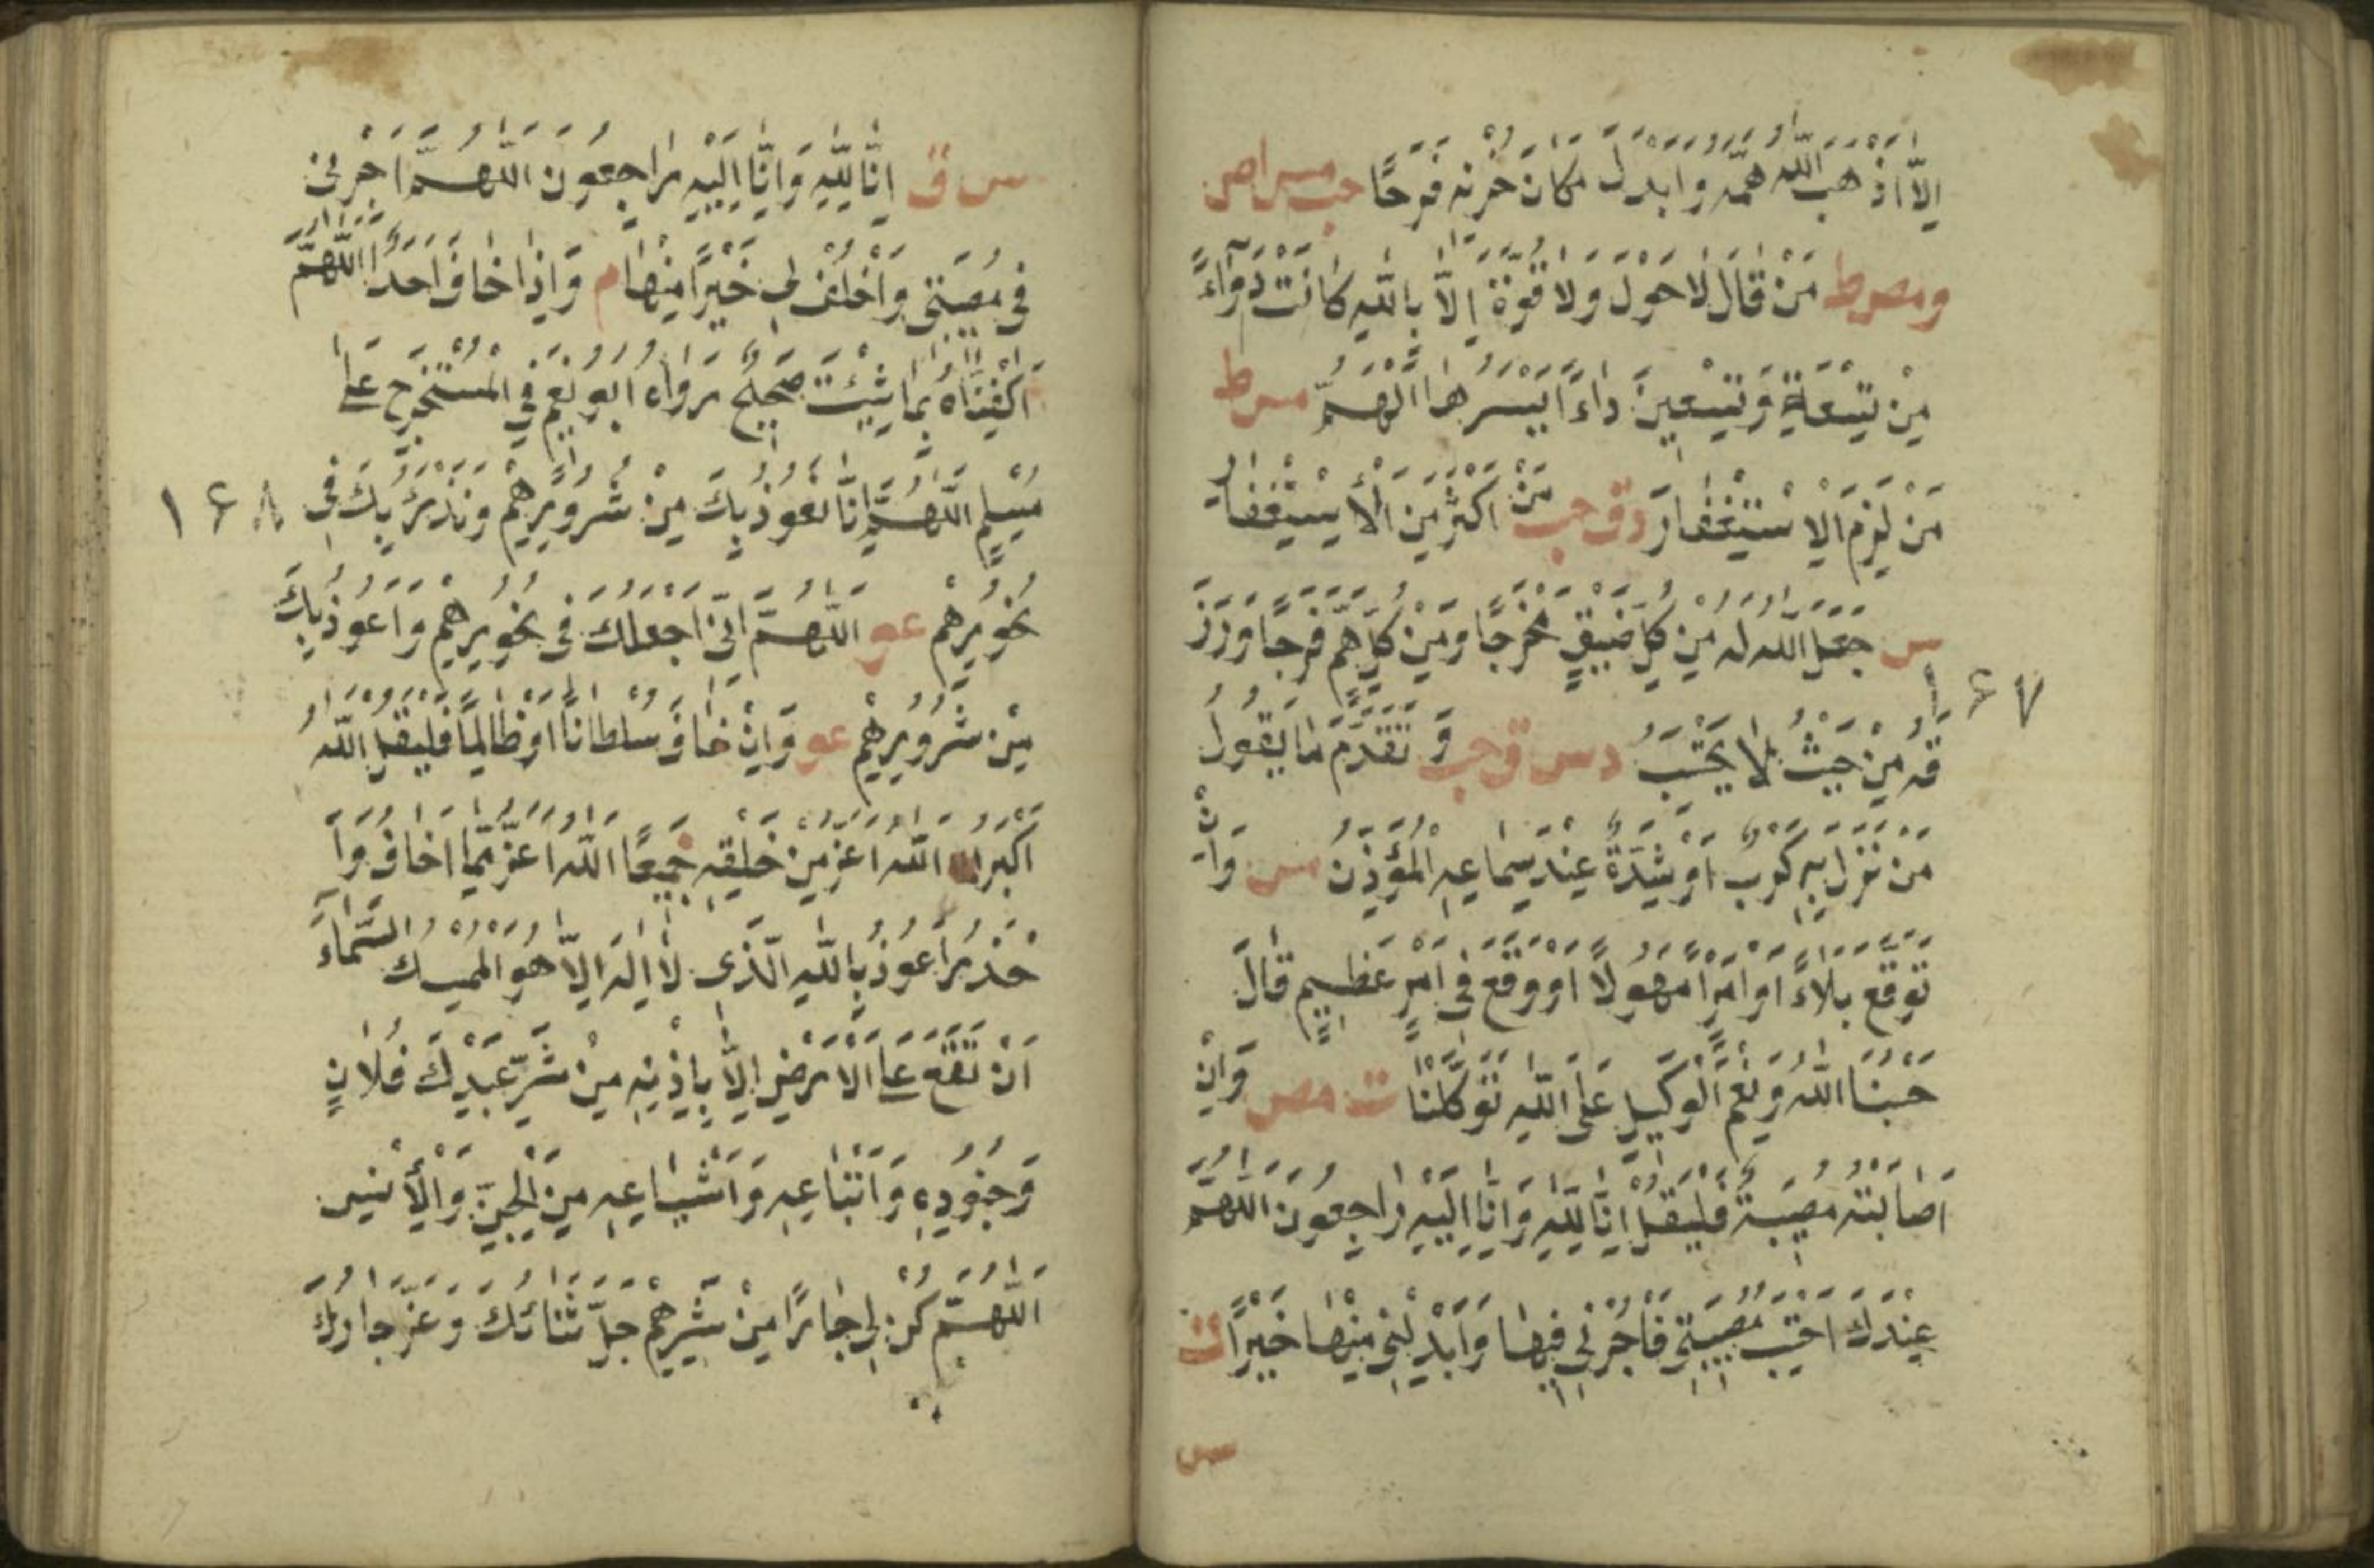 اِلَّا اَذْهَبَ اللّٰهُ هَمَّهُ وَاَبْدَلَ مَكَانَ حُزْنِهِ فَرَحًا حب مس ا ص
ر مص ط مَنْ قَالَ لَا حَوْلَ وَلَا قُوَّةَ اِلَّا بِاللّٰهِ كَانَتْ دَوَآءً
مِنْ تِسْعَةٍ وَتِسْعِينَ دَاءً اَيْسَرُهَا الْهَمُّ مس ط
مَنْ لَزِمَ الْاِسْتِغْفَارَ د ق حب مَنْ اَكْثَرَ مِنَ الْاِسْتِغْفَارِ
س جَعَلَ اللّٰهُ لَهُ مِنْ كُلِّ ضِيقٍ مَخْرَجًا وَمِنْ كُلِّ هَمٍّ فَرَجًا وَرَزَ
١٦٧
قَهُ مِنْ حَيْثُ لَا يَحْتَسِبُ د س ق حب وَتَقَدَّمَ مَا يَقُولُ
مَنْ نَزَلَ بِهِ كَرْبٌ اَوْ شِدَّةٌ عِنْدَ سِمَاعِهِ الْمُؤَذِّنَ مس وَاِنْ
تَوَقَّعَ بَلَاءً اَوْ اَمْرًا مَهُولًا اَوْ وَقَعَ فِي اَمْرٍ عَظِيمٍ قَالَ
حَسْبُنَا اللّٰهُ وَنِعْمَ الْوَكِيلِ عَلَى اللّٰهِ تَوَكَّلْنَا ت مص وَاِنْ
اَصَابَتْهُ مُصِيبَةٌ فَلْيَقُلْ اِنَّا لِلّٰهِ وَاِنَّا اِلَيْهِ رَاجِعُونَ اَللّٰهُمَّ
عِنْدَكَ اَحْتَسِبُ مُصِيبَتِي فَأْجُرْنِي فِيهَا وَاَبْدِلْنِي مِنْهَا خَيْرًا ت
س
س ق اِنَّا لِلّٰهِ وَاِنَّا اِلَيْهِ رَاجِعُونَ اَللّٰهُمَّ اَجُرْنِي
فِي مُصِيبَتِي وَاَخْلُفْ لِي خَيْرًا مِنْهَا م وَاِذَا خَافَ اَحَدًا اَللّٰهُمَّ
اَكْفِنَاهُ بِمَا شِئْتَ صَحِيحٌ رَوَاهُ اَبُو نُعَيْمٍ فِي الْمُسْتَخْرَجِ عَلَى
مُسْلِمٍ اَللّٰهُمَّ اِنَّا نَعُوذُ بِكَ مِنْ شُرُورِهِمْ وَنَدْرَئُ بِكَ فِي
١٦٨
نُحُورِهِمْ عو اَللّٰهُمَّ اِنِّي اَجْعَلُكَ فِي نُحُورِهِمْ وَاَعُوذُ بِكَ
مِنْ شُرُورِهِمْ عو وَاِنْ خَافَ سُلْطَانًا اَوْ ظَالِمًا فَلْيَقُلْ اَللّٰهُ
اَكْبَرُ اَللّٰهُ اَعَزُّ مِنْ خَلْقِهِ جَمِيعًا اَللّٰهُ اَعَزُّ مِمَّا اَخَافُ وَاَ
حْذَرُ اَعُوذُ بِاللّٰهِ الَّذِي لَا اِلٰهَ اِلَّا هُوَ الْمُمْسِكُ السَّمَآءَ
اَنْ تَقَعَ عَلَى الْاَرْضِ اِلَّا بِاِذْنِهِ مِنْ شَرِّ عَبْدِكَ فُلَانٍ
وَجُنُودِهِ وَاَتْبَاعِهِ وَاَشْيَاعِهِ مِنَ الْجِنِّ وَالْاِنْسِ
اَللّٰهُمَّ كُنْ لِي جَارًا مِنْ شَرِّهِمْ جَلَّ ثَنَائُكَ وَعَزَّ جَارُكَ